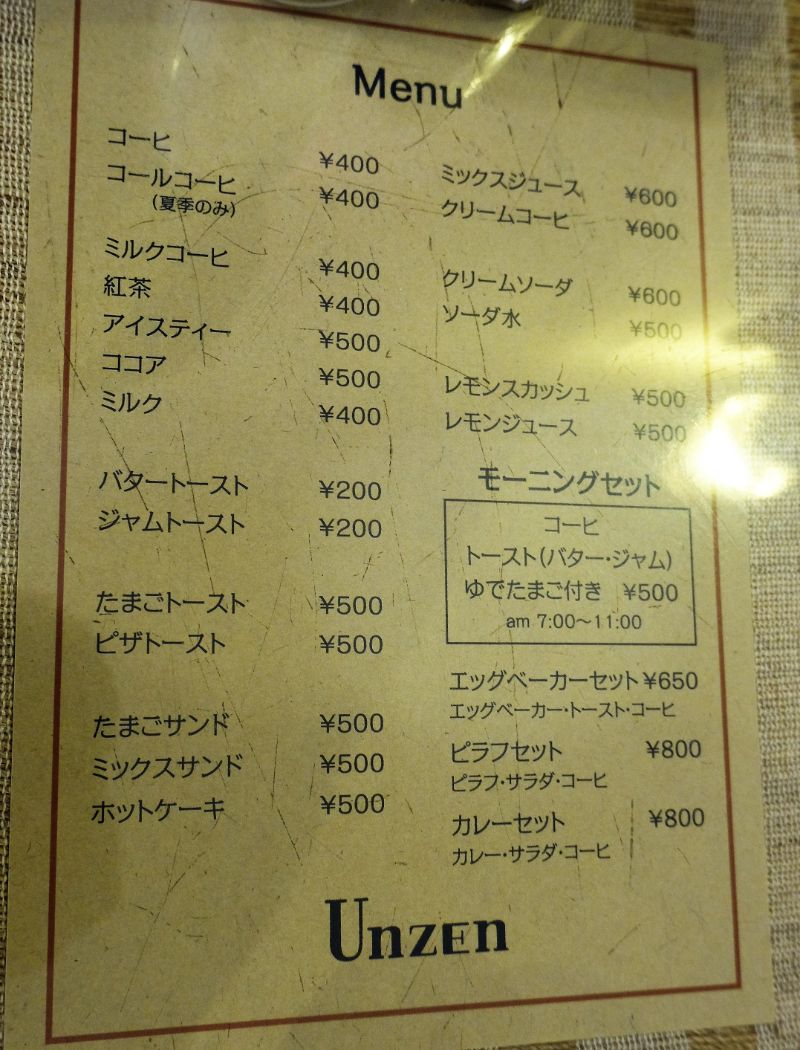 Menu
コーヒ ¥400
コールコーヒ ¥400
(夏季のみ)
ミルクコーヒ ¥400
紅茶 ¥400
アイスティー ¥500
ココア ¥500
ミルク ¥400
バタートースト ¥200
ジャムトースト ¥200
たまごトースト ¥500
ピザトースト ¥500
たまごサンド ¥500
ミックスサンド ¥500
ホットケーキ ¥500
ミックスジュース ¥600
クリームコーヒ ¥600
クリームソーダ ¥600
ソーダ水 ¥500
レモンスカッシュ ¥500
レモンジュース ¥500
モーニングセット
コーヒ
トースト(バター・ジャム)
ゆでたまご付き ¥500
am 7:00〜11:00
エッグベーカーセット ¥650
エッグベーカー・トースト・コーヒ
ピラフセット ¥800
ピラフ・サラダ・コーヒ
カレーセット ¥800
カレー・サラダ・コーヒ
UnzEn